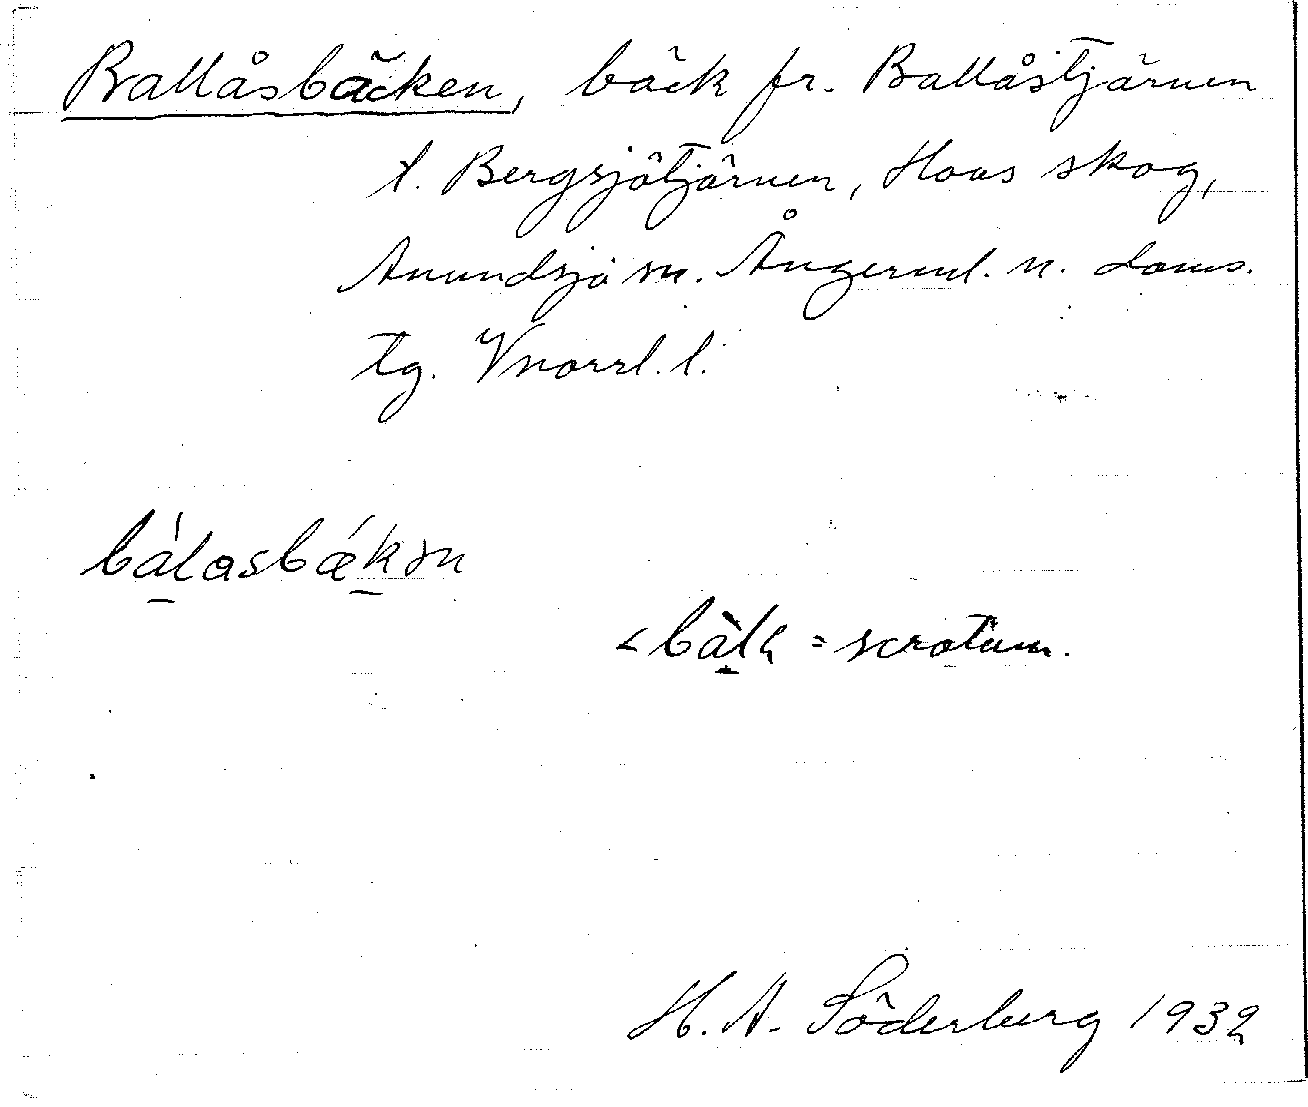 Ballåsbäcken, bäck fr. Ballåstjärnen
t. Bergsjötjärnen, Hoas skog,
Anundsjö sn. Ångerml. n. doms.
tg. Vnorrl. l.
bálasbǽkən
< bàlɩ = scrotum.
H. A. Söderberg 1932